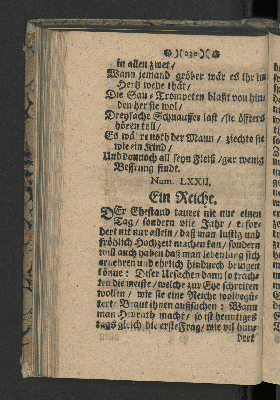 )( 230 )(
in allen zwet /
Wann jemand gröber wär es ihr in
Hertz wehe thät /
Die Sau-Trompeten blaßt von hin-
den her sie wol /
Dreyfache Schnauffer last / sie öffters
hören toll /
Es wä r noth der Mann / ziechte sie
wie ein Kind /
Und dannoch all seyn Fleiß / gar wenig
Bessrung findt.
Num. LXXII,
Ein Reiche.
DEr Ehestand tauret nit nur einen
Tag / sondern vile Jahr / erfor-
dert nit nur allein / daß man lustig und
fröhlich Hochzeit machen kan / sondern
will auch haben daß man lebenlang sich
ernehren und ehrlich hindurch bringen
könne: Diser Ursachen dann so trach-
ten die meiste / welche zur Ehe schreiten
wollen / wie sie eine Reiche wolbegü-
terte Braut ihnen außsuchen: Wann
man Heurath macht / so ist heuntiges
tags gleich die erste Frag / wie vil hun-
dert